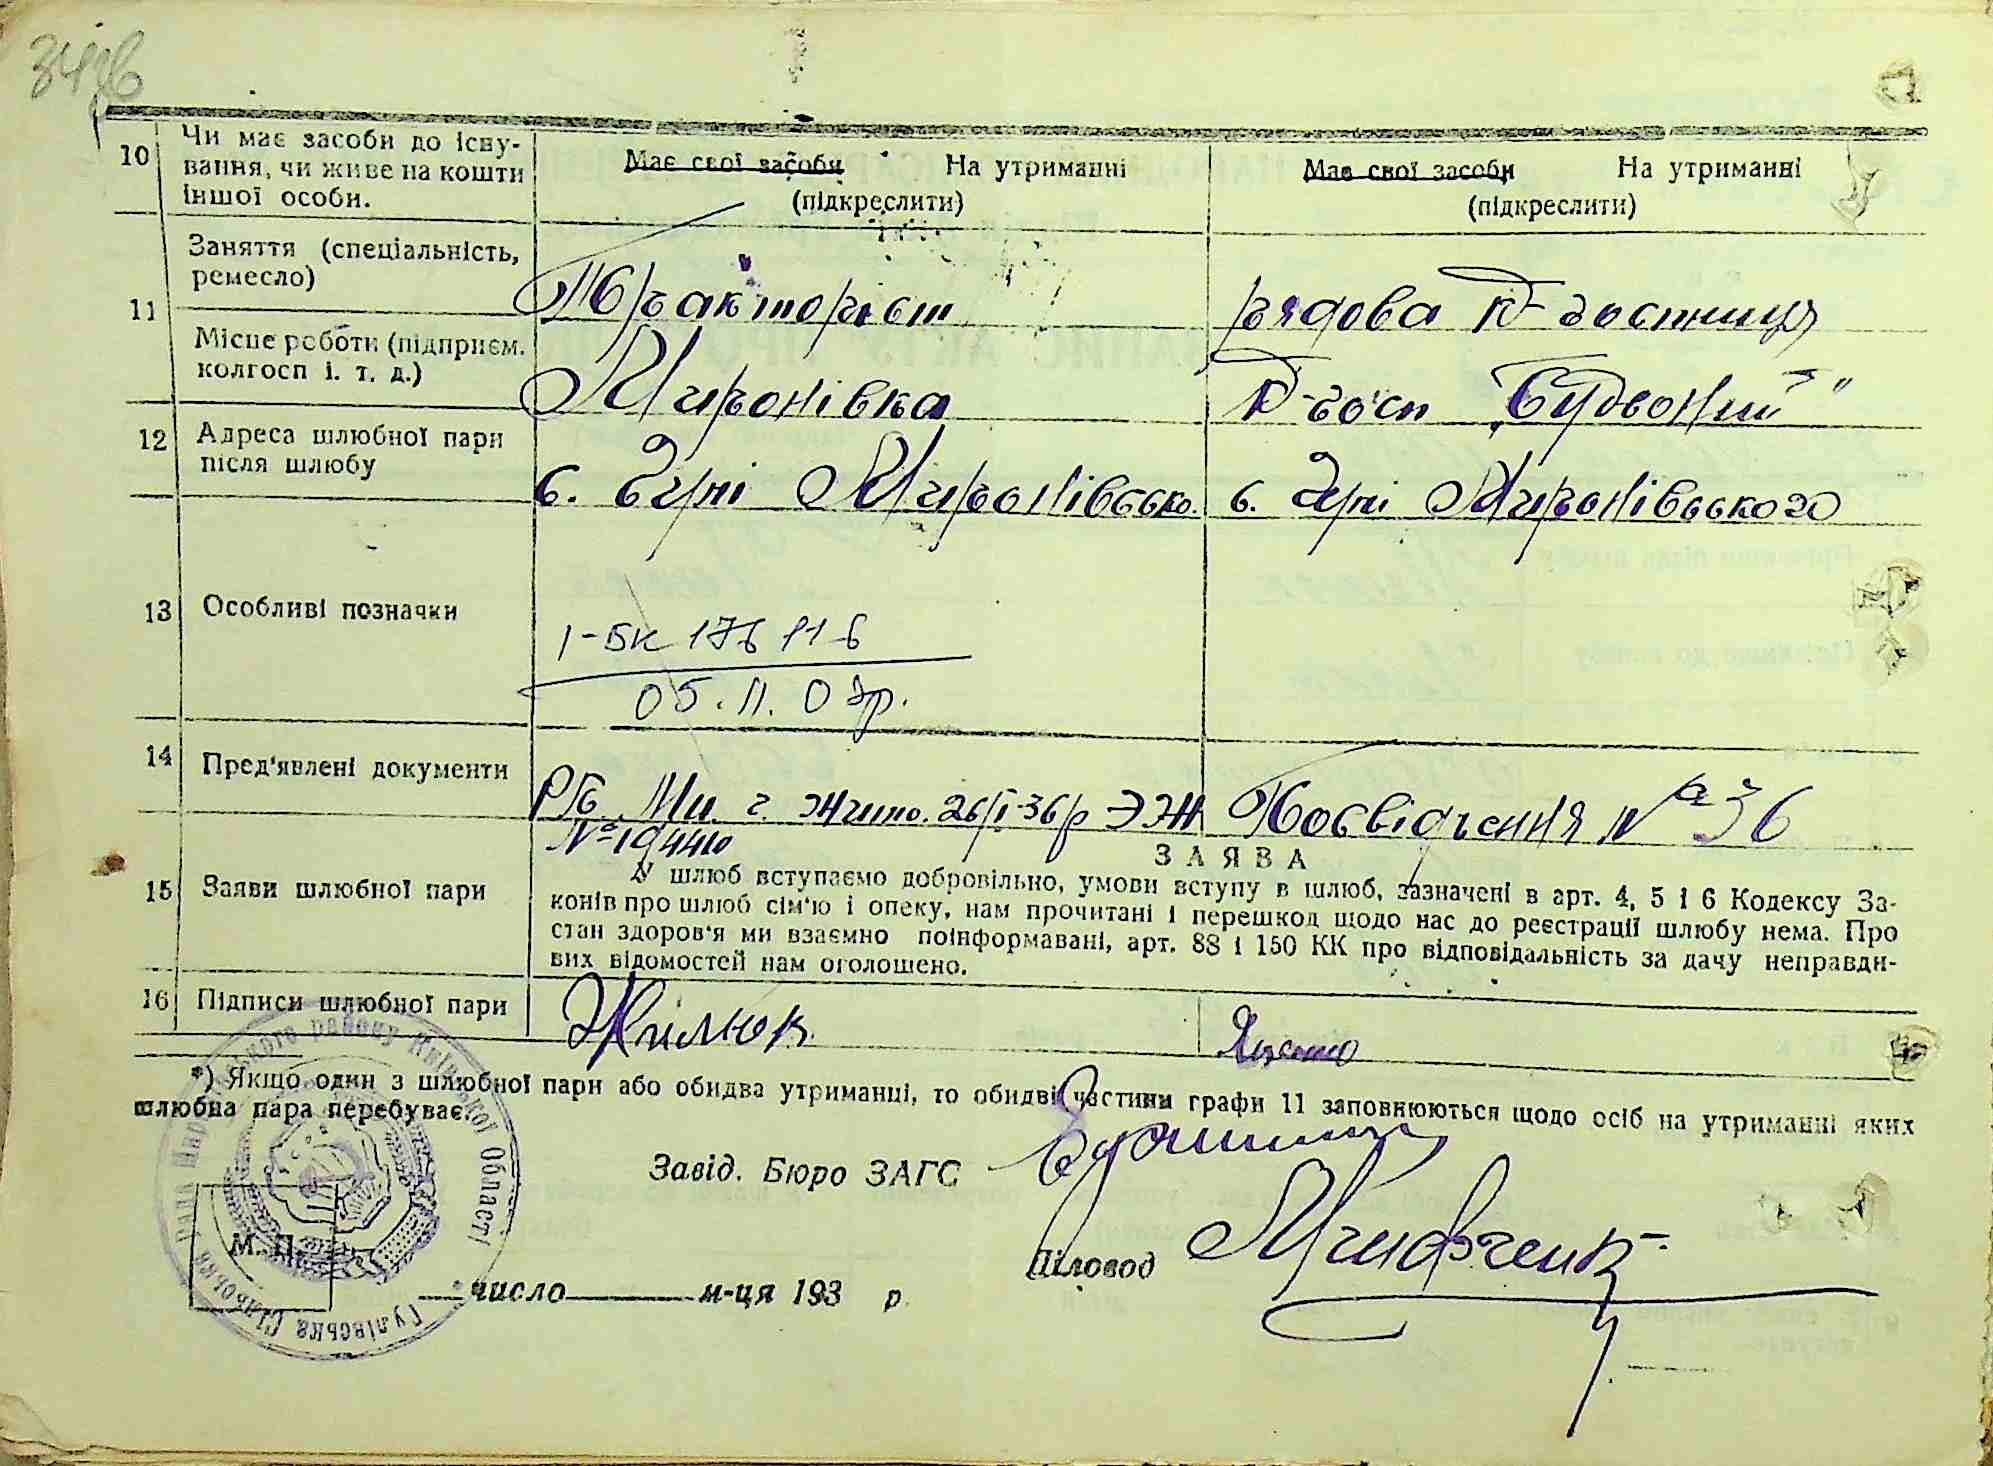 10 Чи має засоби до існу-
вання, чи живе на кошти
іншої особи.
Має свої засоби На утриманні
(підкреслити)
Має свої засоби На утриманні
(підкреслити)
11 Заняття (спеціальність,
ремесло)
Тракторіст
рядова к-госпниця
Місце роботи (підприєм.
колгосп і. т. д.)
Миронівка
К-госп „Будьоний"
12 Адреса шлюбної пари
після шлюбу
с. Гулі Миронівсько.
с. Гулі Миронівського
13 Особливі позначки
І-БК 176116
05.11.07р.
14 Пред'явлені документи
26/І-36р ЭЖ
№ 19440
Посвідчення № 36
15 Заяви шлюбної пари
ЗАЯВА
У шлюб вступаємо добровільно, умови вступу в шлюб, зазначені в арт. 4, 5 і 6 Кодексу За-
конів про шлюб сім'ю і опеку, нам прочитані і перешкод щодо нас до реєстрації шлюбу нема. Про
стан здоров'я ми взаємно поінформавані, арт. 88 і 150 КК про відповідальність за дачу неправди-
вих відомостей нам оголошено.
16 Підписи шлюбної пари
Жилюк
Яценко
*) Якщо один з шлюбної пари або обидва утриманні, то обидві частини графи 11 заповнюються щодо осіб на утриманні яких
шлюбна пара перебуває.
Завід. Бюро ЗАГС
Діловод
М. П.
число м-ця 193 р.
району Київської Області
Гулівська Сільська рада